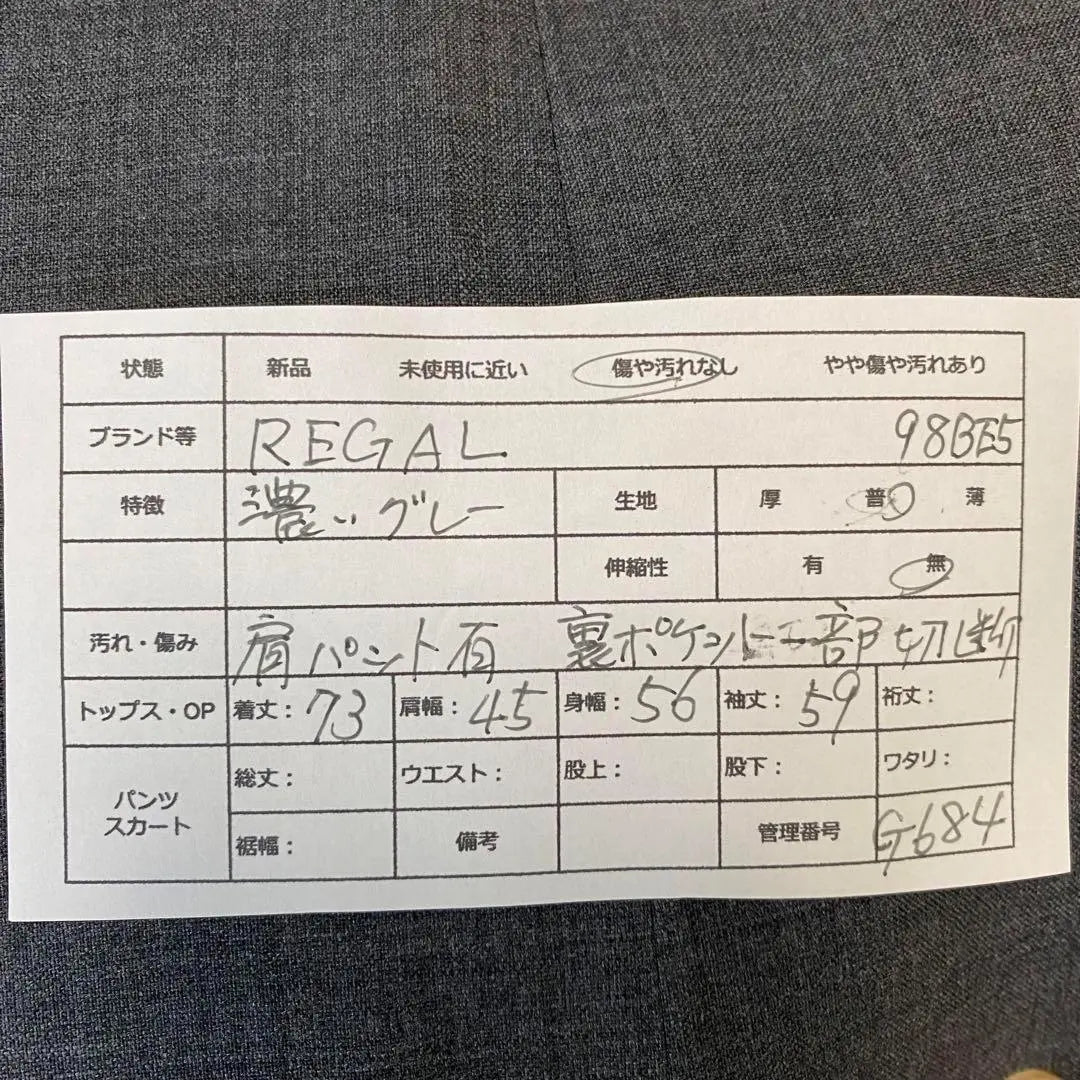 状態 新品 未使用に近い 傷や汚れなし やや傷や汚れあり
ブランド等 REGAL 98BE5
特徴 濃いグレー 生地 厚 普 薄
伸縮性 有 無
汚れ・傷み 肩パント有 裏ポケント一部切断
トップス・OP 着丈: 73 肩幅: 45 身幅: 56 袖丈: 59 裄丈:
パンツ スカート 総丈: ウエスト: 股上: 股下: ワタリ:
裾幅: 備考 管理番号 G684